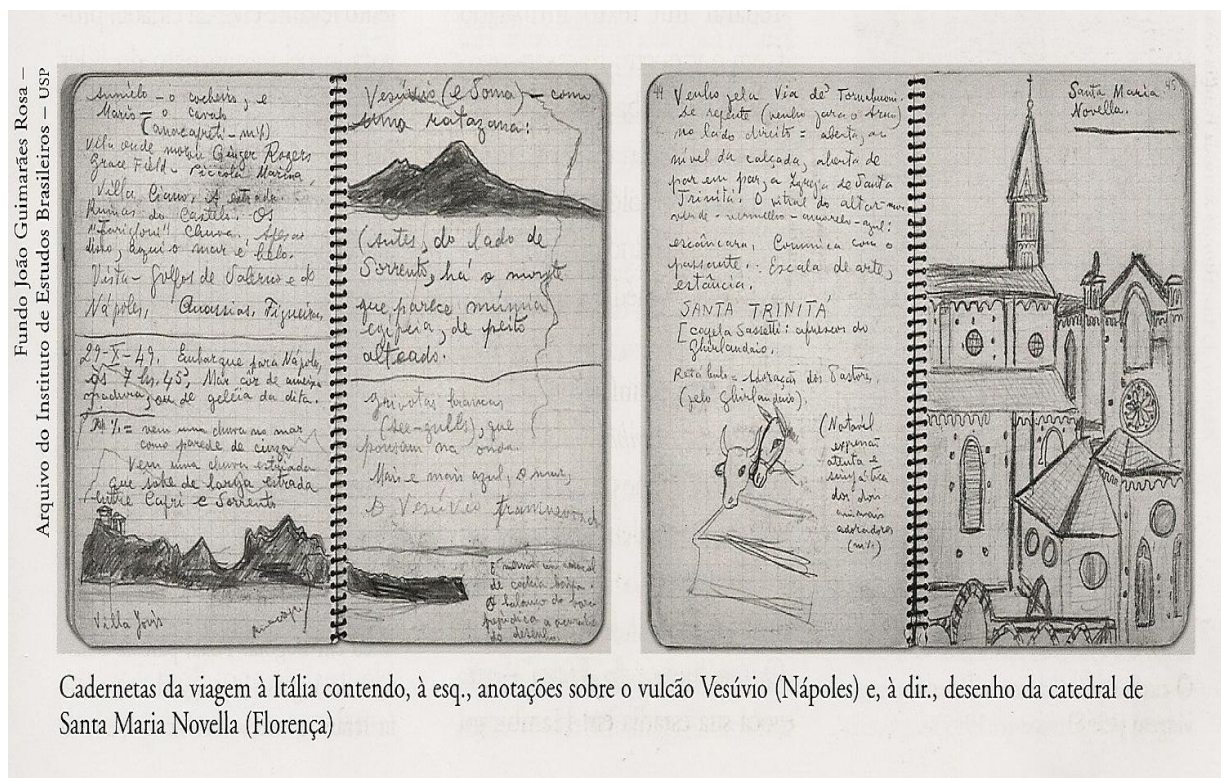 Fundo João Guimarães Rosa –
Arquivo do Instituto de Estudos Brasileiros – USP
o cocheiro, e
Mario = o cavalo
(m%)
villa onde mora Ginger Rogers
Grace Field – Piccola Marina,
Villa Ciano. A estrada.
Ruinas do Castelo. Os
"Faraglioni" Chuva.
disso, aqui o mar é belo.
Vista – golfos de Salerno e de
Nápoles.
29-X-49. Embarque para Nápoles,
às 7 hs, 45'. Mar côr de ameixa
madura, ou de geleia da dita.
m% = vem uma chuva no mar
como parede de cinza
Vem uma chuva
que sobe de larga estrada
entre Capri e Sorrento
Villa Jovis
Vesúvio (e Soma) – como
uma ratazana:
(Antes, do lado de
Sorrento, há o monte
que parece múmia
egípcia, de peito
alteado.
gaivotas brancas
(see-gulls), que
pousam na onda.
Mais e mais azul, o mar,
O Vesúvio
de
O balanço do barco
prejudica a
do desenho.
44 Venho pela Via de' Tornabuoni.
De repente (venho para o Arno)
no lado direito = aberta, ao
nivel da calçada, aberta de
par em par, a Igreja de Santa
Trinità. O vitral do altar-mor
verde – vermelho – amarelo – azul:
escâncara. Comunica com o
passante. Escala de arte,
estância.
SANTA TRINITÁ
[capela Sassetti: afrescos do
Ghirlandaio.
Retábulo = Adoração dos Pastores,
(pelo Ghirlandaio).
(Notável
expressão
atenta e
simpática
dos dois
animais
adoradores
(m%)
Santa Maria 45
Novella.
Cadernetas da viagem à Itália contendo, à esq., anotações sobre o vulcão Vesúvio (Nápoles) e, à dir., desenho da catedral de
Santa Maria Novella (Florença)